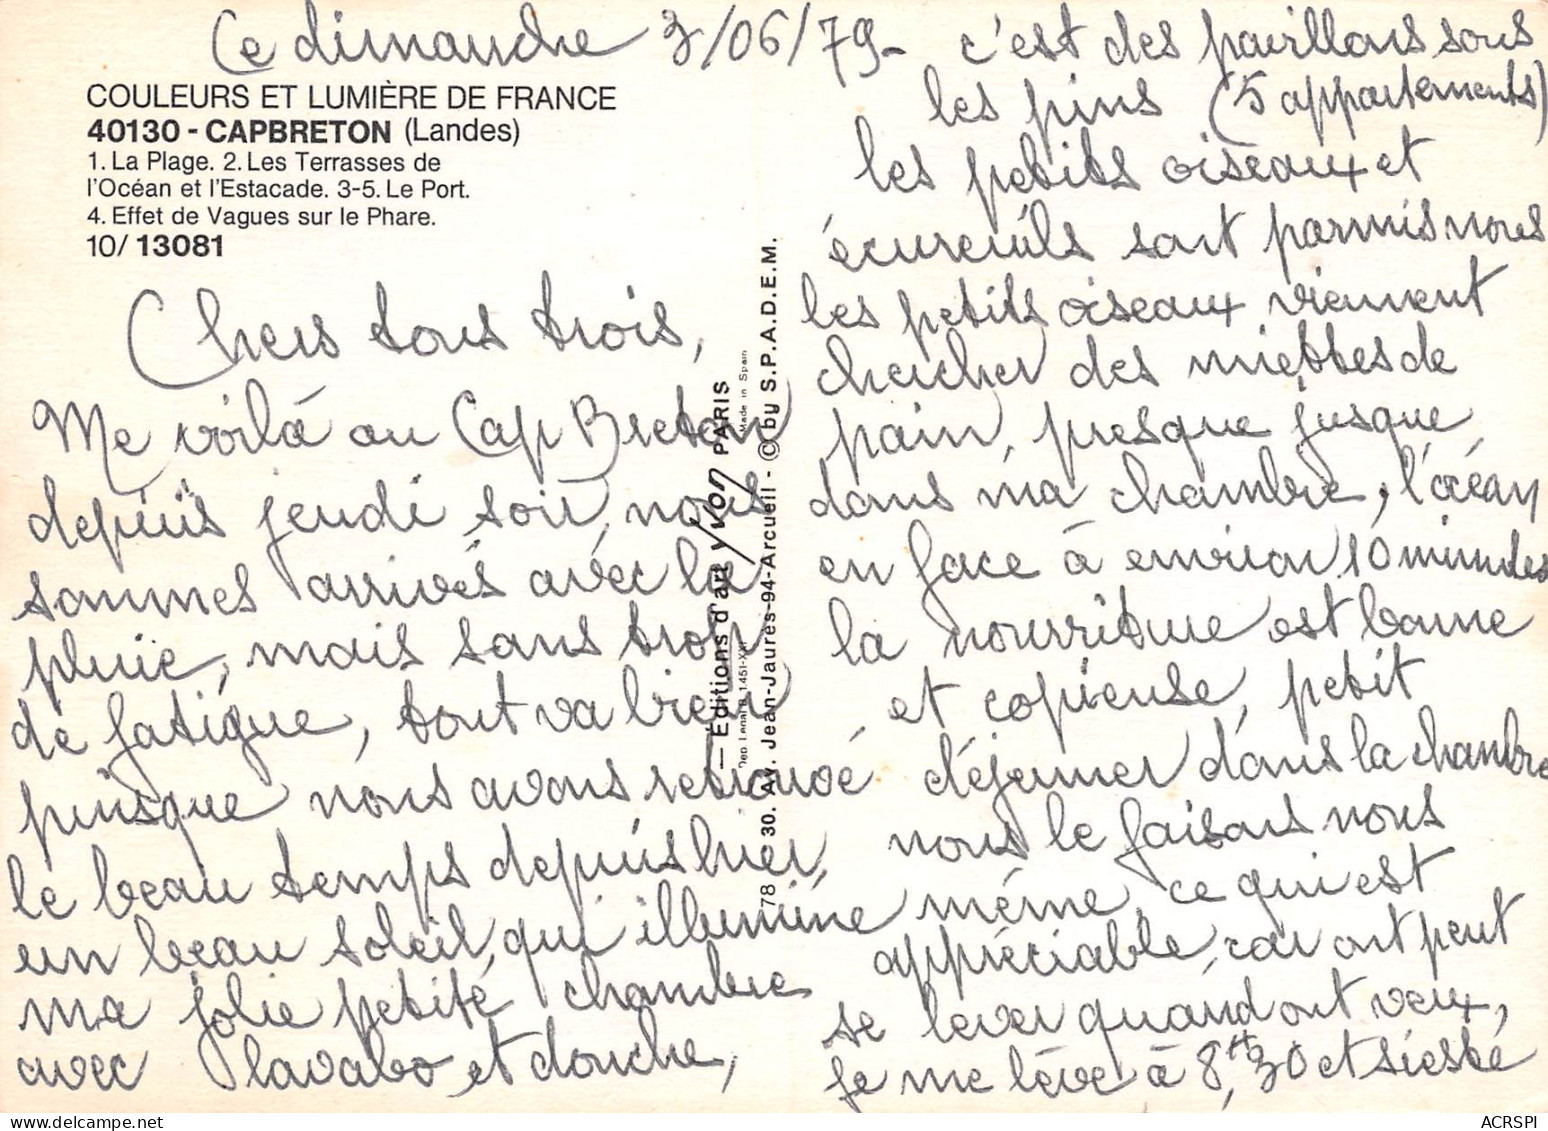 Ce dimanche 3/06/79-
COULEURS ET LUMIÈRE DE FRANCE
40130 - CAPBRETON (Landes)
1. La Plage. 2. Les Terrasses de
l'Océan et l'Estacade. 3-5. Le Port.
4. Effet de Vagues sur le Phare.
10/ 13081
Chers tous trois,
Me voilà au Cap Breton
depuis jeudi soir, nous
sommes arrivés avec la
pluie, mais sans trop
de fatigue, tout va bien
puisque nous avons retrouvé
le beau temps depuis hier,
un beau soleil, qui illumine
ma jolie petite chambre
avec lavabo et douche,
— Éditions d'art yvon PARIS
Made in Spain
78 30. Av. Jean-Jaures-94-Arcueil - © by S.P.A.D.E.M.
c'est des pavillons sous
les pins (5 appartements)
les petits oiseaux et
écureuils sont parmis nous
les petits oiseaux viennent
chercher des miettes de
pain, presque jusque
dans ma chambre, l'océan
en face à environ 10 minutes
la nourriture est bonne
et copieuse, petit
déjeuner dans la chambre
nous le faisons nous
même, ce qui est
appréciable, car ont peut
se lever quand ont veux,
je me lève à 8H,30 et sieste
ACRSPI